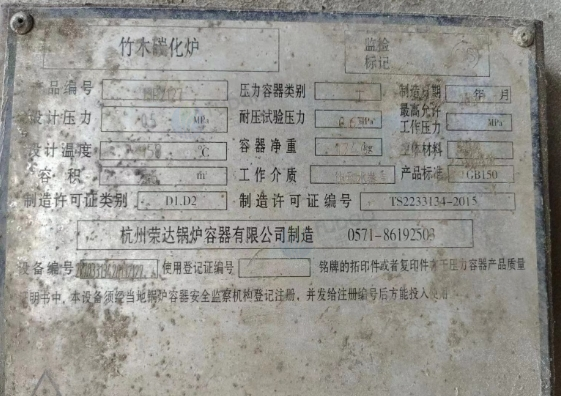 竹木碳化炉 监检
标记
产品编号 压力容器类别 I 制造日期 年 月
设计压力 0.5 MPa 耐压试验压力 MPa 最高允许工作压力 MPa
设计温度 150 ℃ 容器净重 kg 主体材料
容积 m 工作介质 产品标准 GB150
制造许可证类别 D1.D2 制造许可证编号 TS2233134-2015
杭州荣达锅炉容器有限公司制造 0571-86192503
设备编号 使用登记证编号 铭牌的拓印件或者复印件存于压力容器产品质量
证明书中，本设备须经当地锅炉容器安全监察机构登记注册，并发给注册编号后方能投入使用